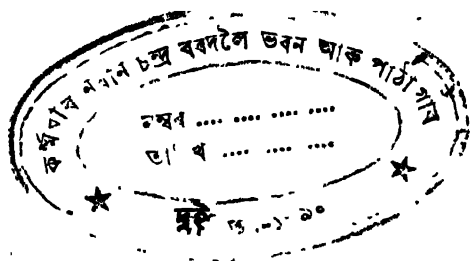 কৰ্ম্মবীৰ নবীন চন্দ্ৰ বৰদলৈ ভবন আৰু পাঠাগাৰ
নম্বৰ .... .... .... ....
তা খ .... .... ....